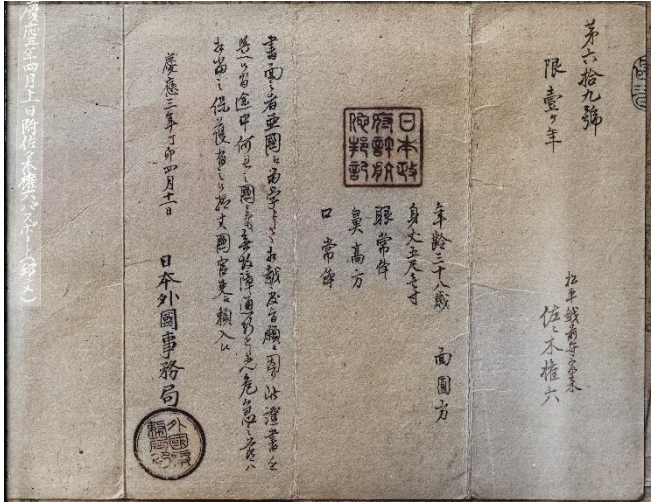 第六拾九號
限壹ケ年
松平越前守家来
佐々木權六
年齢三十八歳 面圓方
身丈五尺壱寸
眼常体
鼻高方
口常体
日本政
府許航
他邦記
書面之者亜國江留学として相越度旨願ニ因り此證書を
与へ候間途中何れ之國ニ而も無故障通行せしめ危急之節ハ
相當之保護有之候様其國官吏江頼入候
慶應三年丁卯四月十一日
日本外國事務局
慶應三年四月十一日附佐々木權六パスポート(邦文)